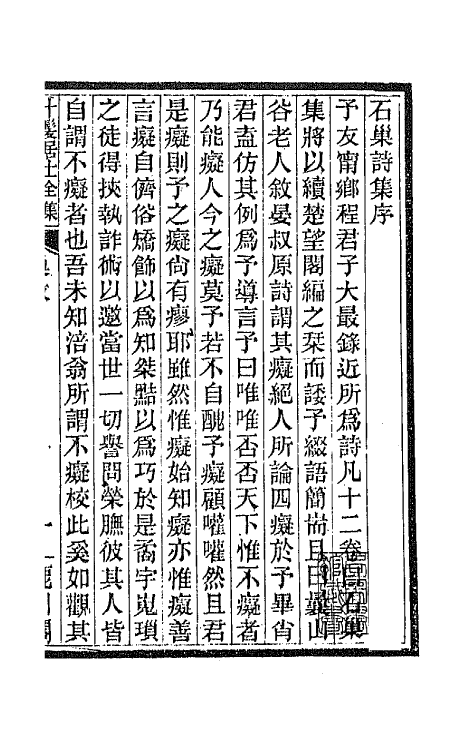 石巢詩集序
予友甯鄉程君子大最錄近所爲詩凡十二卷曰石巢
集將以續楚望閣編之栞而諉予綴語簡耑且曰曩山
谷老人敘晏叔原詩謂其癡絕人所論四癡於予畢肖
君盍仿其例爲予導言予曰唯唯否否天下惟不癡者
乃能癡人今之癡莫予若不自醜予癡顧嚾嚾然且君
是癡則予之癡尙有瘳耶雖然惟癡始知癡亦惟癡善
言癡自儕俗矯飾以爲知桀黠以爲巧於是矞宇嵬瑣
之徒得挾執詐術以邀當世一切譽問榮膴彼其人皆
自謂不癡者也吾未知涪翁所謂不癡校此奚如觀其
十髮居士全集